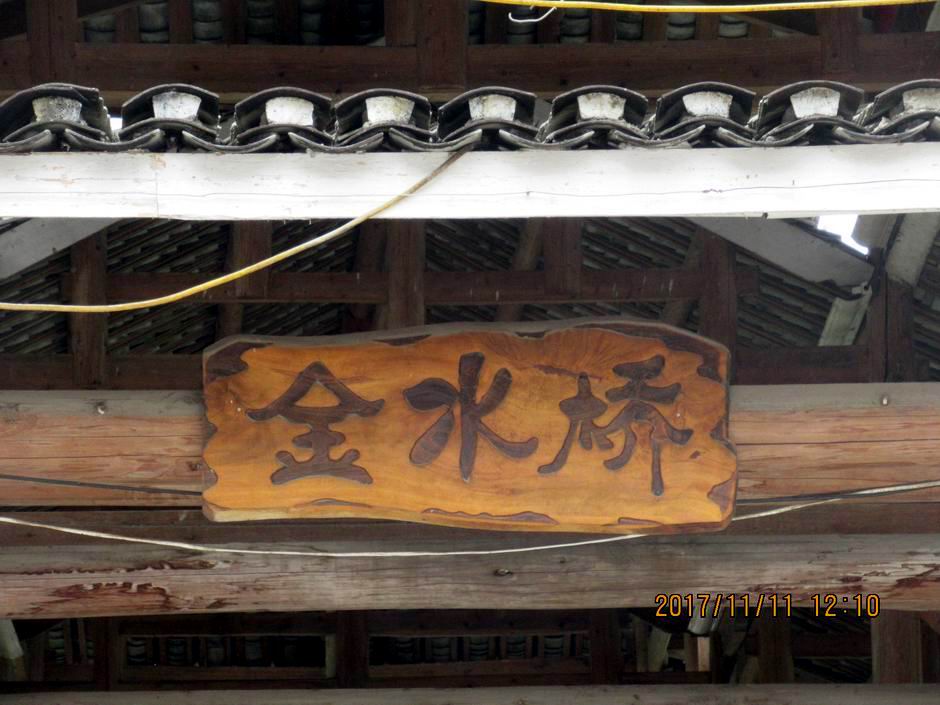 金水桥
2017/11/11 12:10